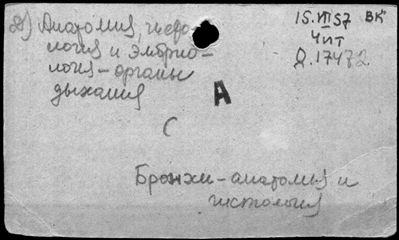 д) Анатомия, гисто-
логия и эмбрио-
логия - органы
дыхания
15.VII 57 ВК
Чит
Д.17472
А
С
Бронхи - анатомия и
гистология